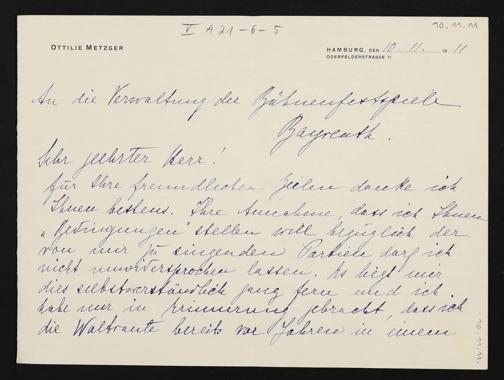 V A 21-6-5
10.11.11
OTTILIE METZGER
HAMBURG, DEN 10. 11. 1911
ODERFELDERSTRASSE 11
An die Verwaltung der Bühnenfestspiele
Bayreuth.
Sehr geehrter Herr!
für Ihre freundlichen Zeilen danke ich
Ihnen bestens. Ihre Annahme, dass ich Ihnen
„Bedingungen" stellen will bezüglich der
von mir zu singenden Partieen darf ich
nicht unwidersprochen lassen. Es liegt mir
dies selbstverständlich ganz fern und ich
habe nur in Erinnerung gebracht, dass ich
die Waltraute bereits vor Jahren in einem
10.11.11.